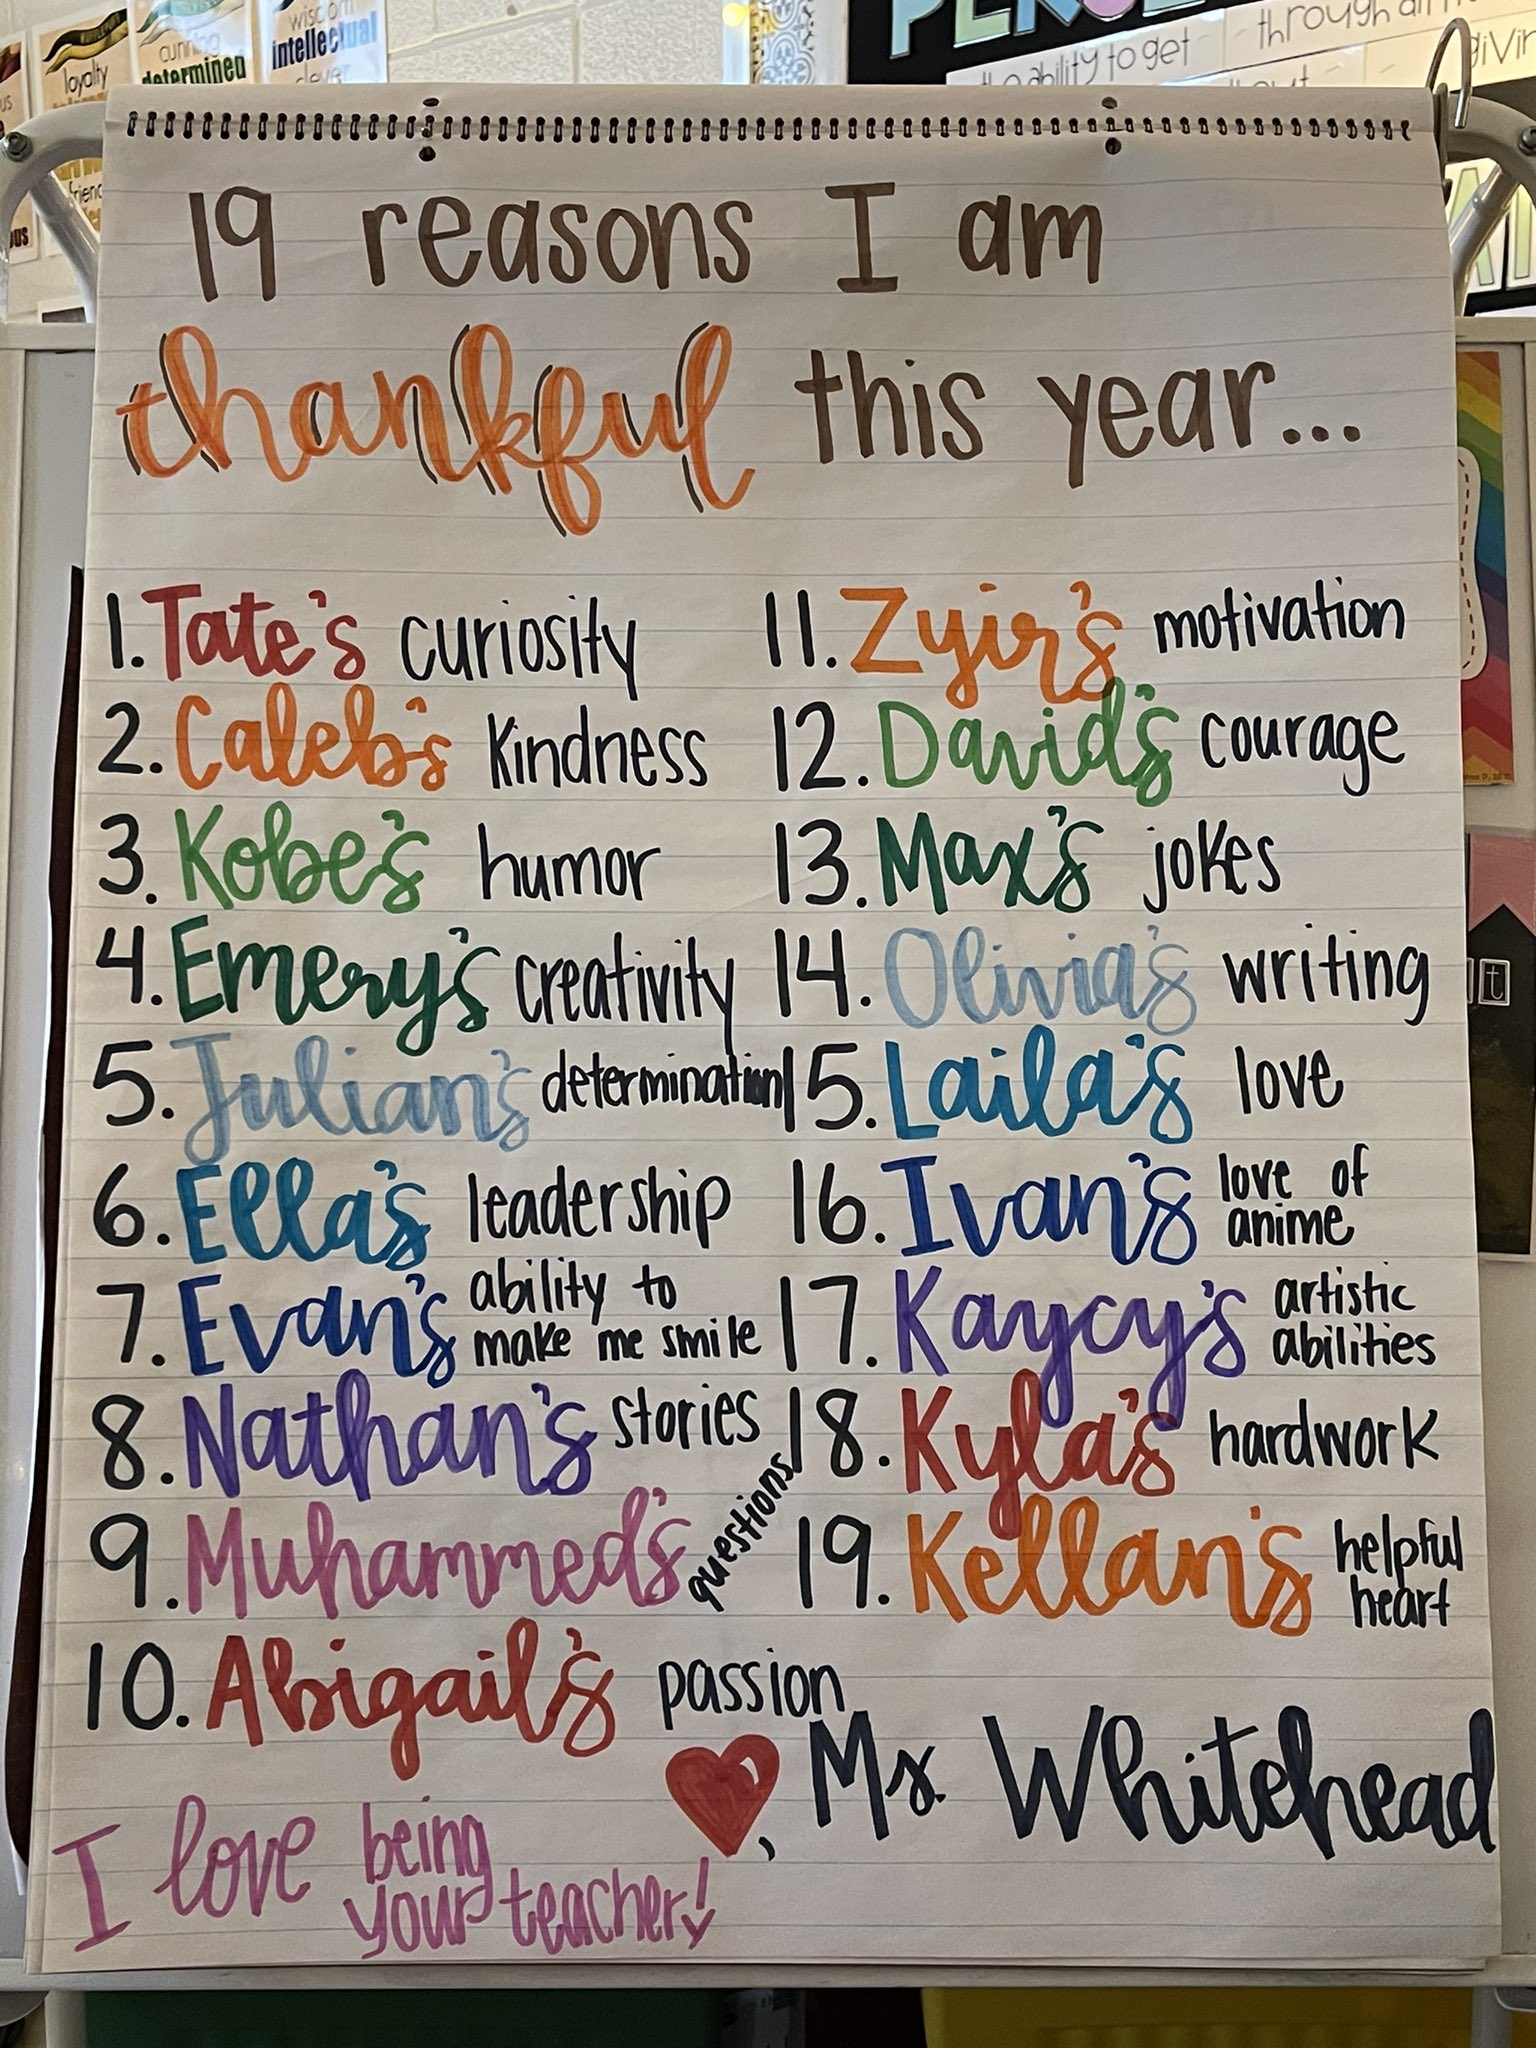 loyalty
cunning
determined
wisdom
intellectual
clever
the ability to get
through
19 reasons I am
thankful this year...
1. Tate's curiosity
2. Caleb's kindness
3. Kobe's humor
4. Emery's creativity
5. Julian's determination
6. Ella's leadership
7. Evan's ability to
make me smile
8. Nathan's stories
9. Muhammed's questions
10. Abigail's passion
11. Zyir's motivation
12. David's courage
13. Max's jokes
14. Olivia's writing
15. Laila's love
16. Ivan's love of
anime
17. Kaycy's artistic
abilities
18. Kyla's hardwork
19. Kellan's helpful
heart
, Ms. Whitehead
I love being
your teacher!